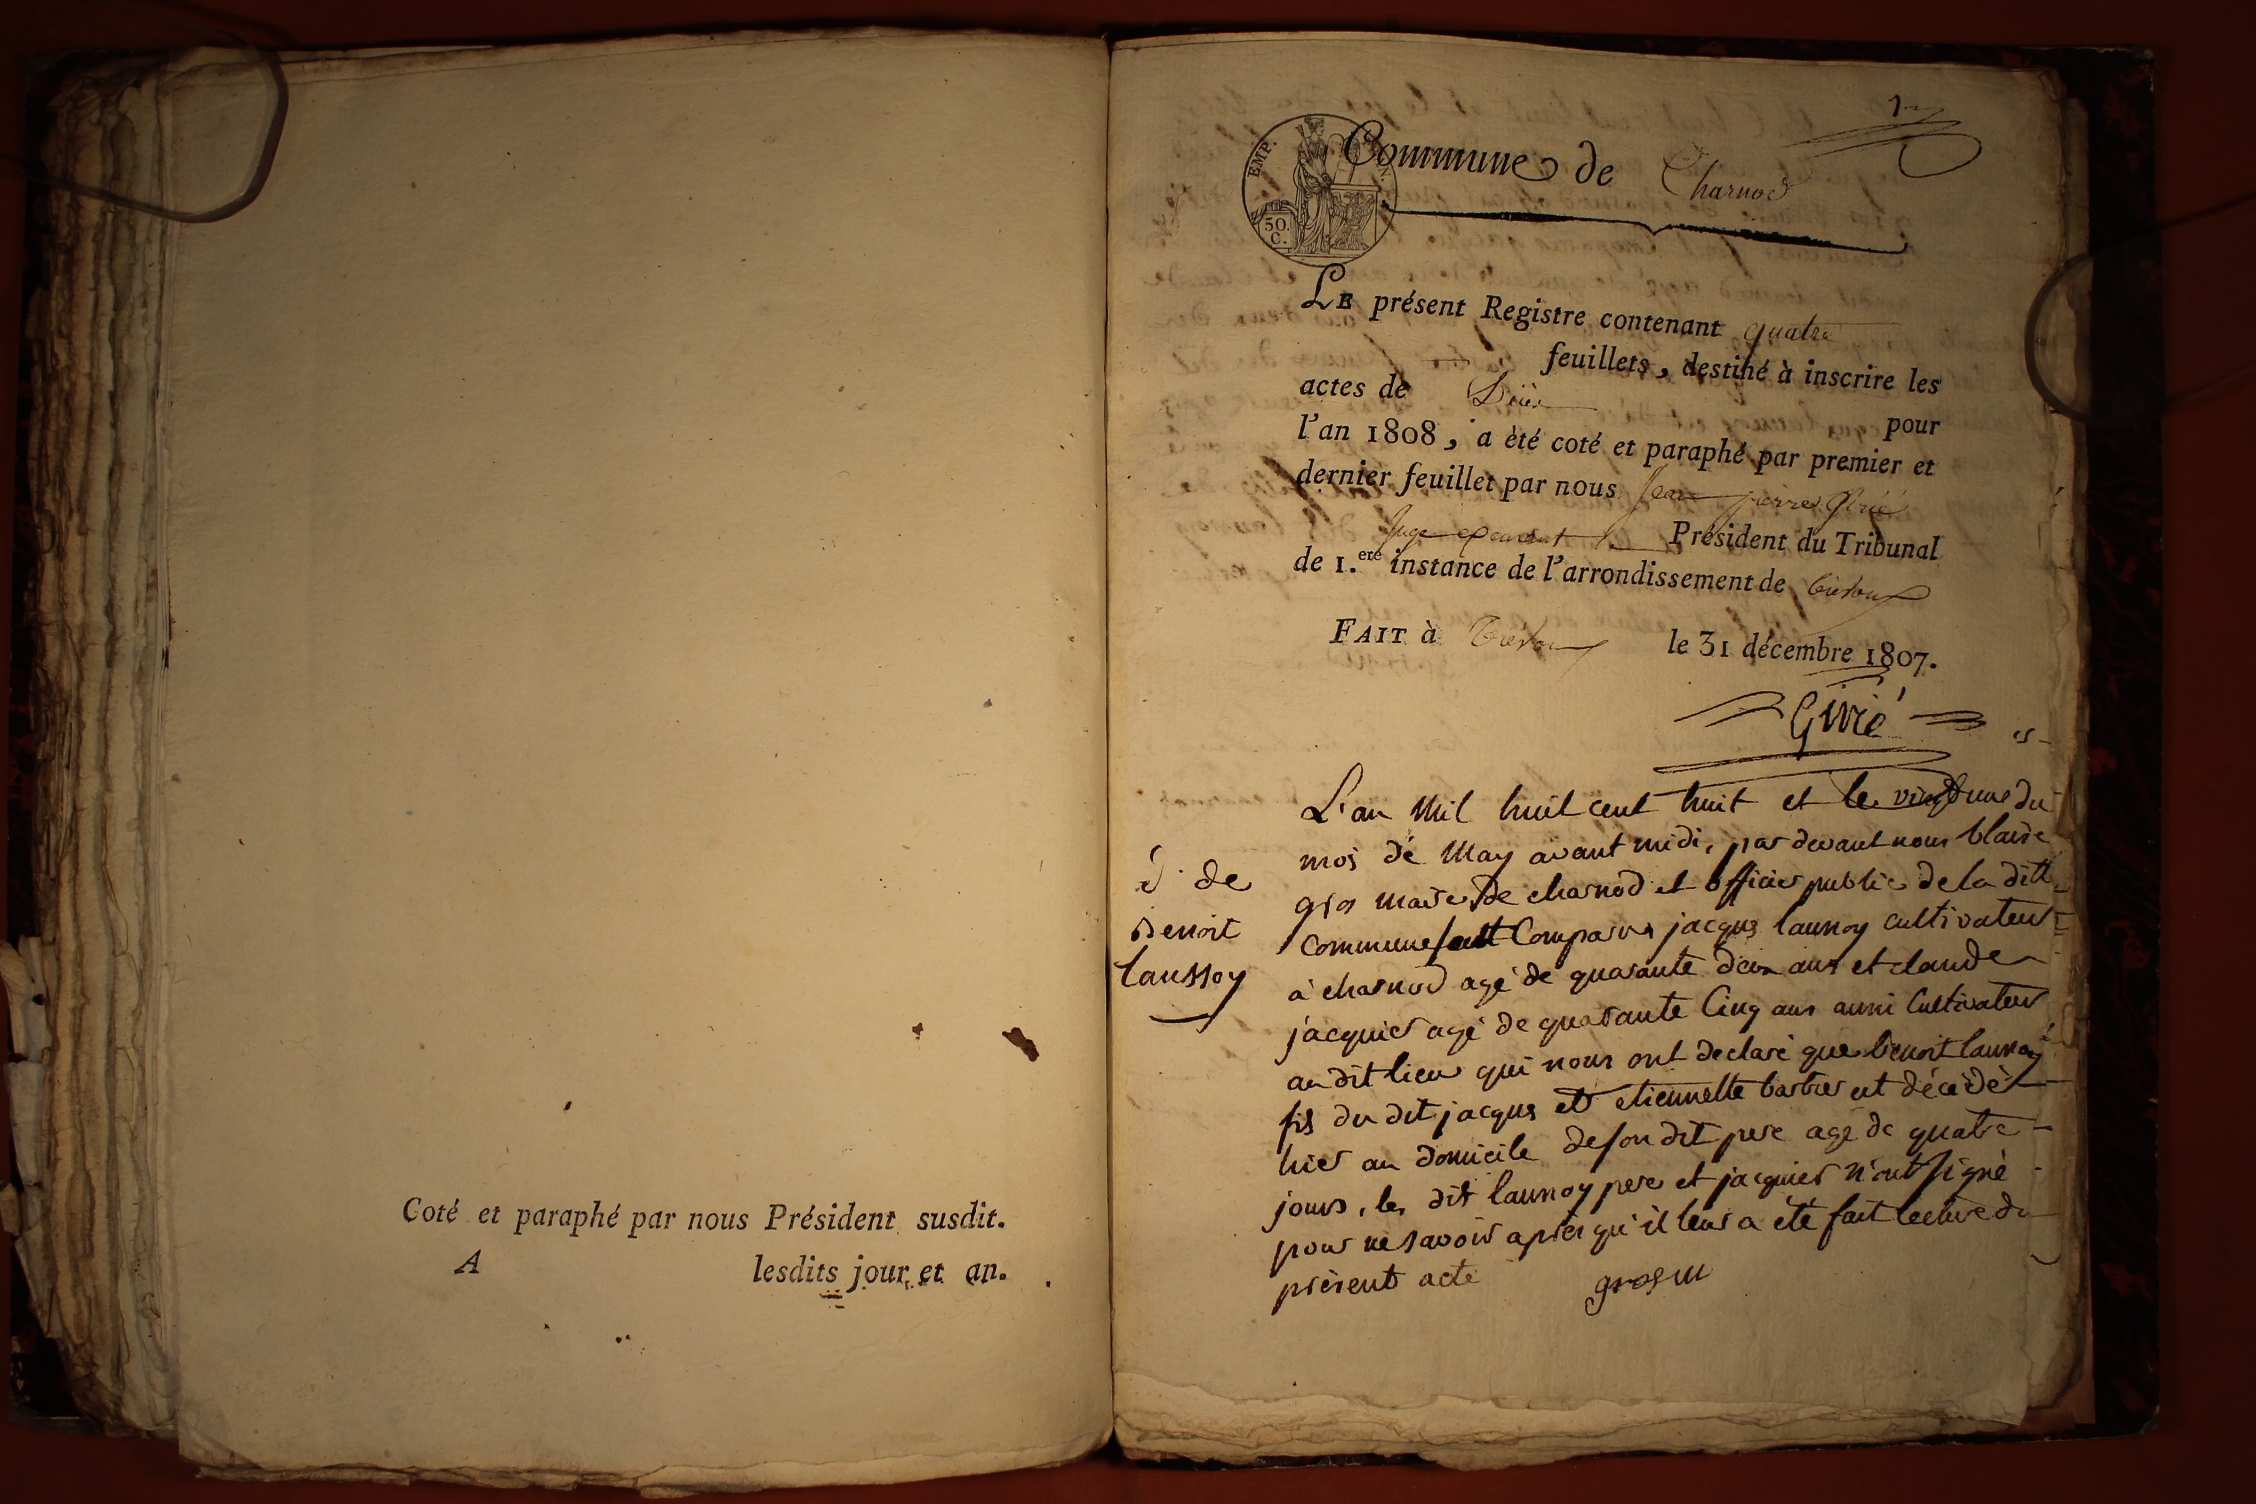 Coté et paraphé par nous Président susdit.
A lesdits jour et an.
1er
EMP.
50.
C.
Commune de Charnod
LE présent Registre contenant quatre
feuillets, destiné à inscrire les
actes de Décès pour
l'an 1808, a èté coté et paraphé par premier et
dernier feuillet par nous Jean pierre Givié
Juge Président du Tribunal
de 1.ere instance de l'arrondissement de Trévoux
FAIT à Trevoux le 31 décembre 1807.
Givié
d. de
Benoit
Laussoy
L'an Mil huit cent huit et le vingt une du
mois dé May avant midi, par devant nous blaise
gros maire de charnod et officier public de la ditte
commune sont Comparus jacques launoy cultivateur
à charnod agé de quarante deux ans et claude
jacquier agé de quarante Cinq ans aussi Cultivateur
au dit lieu qui nous ont declaré que benoit launoy
fils du dit jacques et etiennette barbier est décèdè
hier au domicile de son dit pere agé de quatre
jours, les dits launoy pere et jacquier n'ont signé
pour ne savoir aprèr qu'il leur a été fait lecture du
prèsent acte gros m